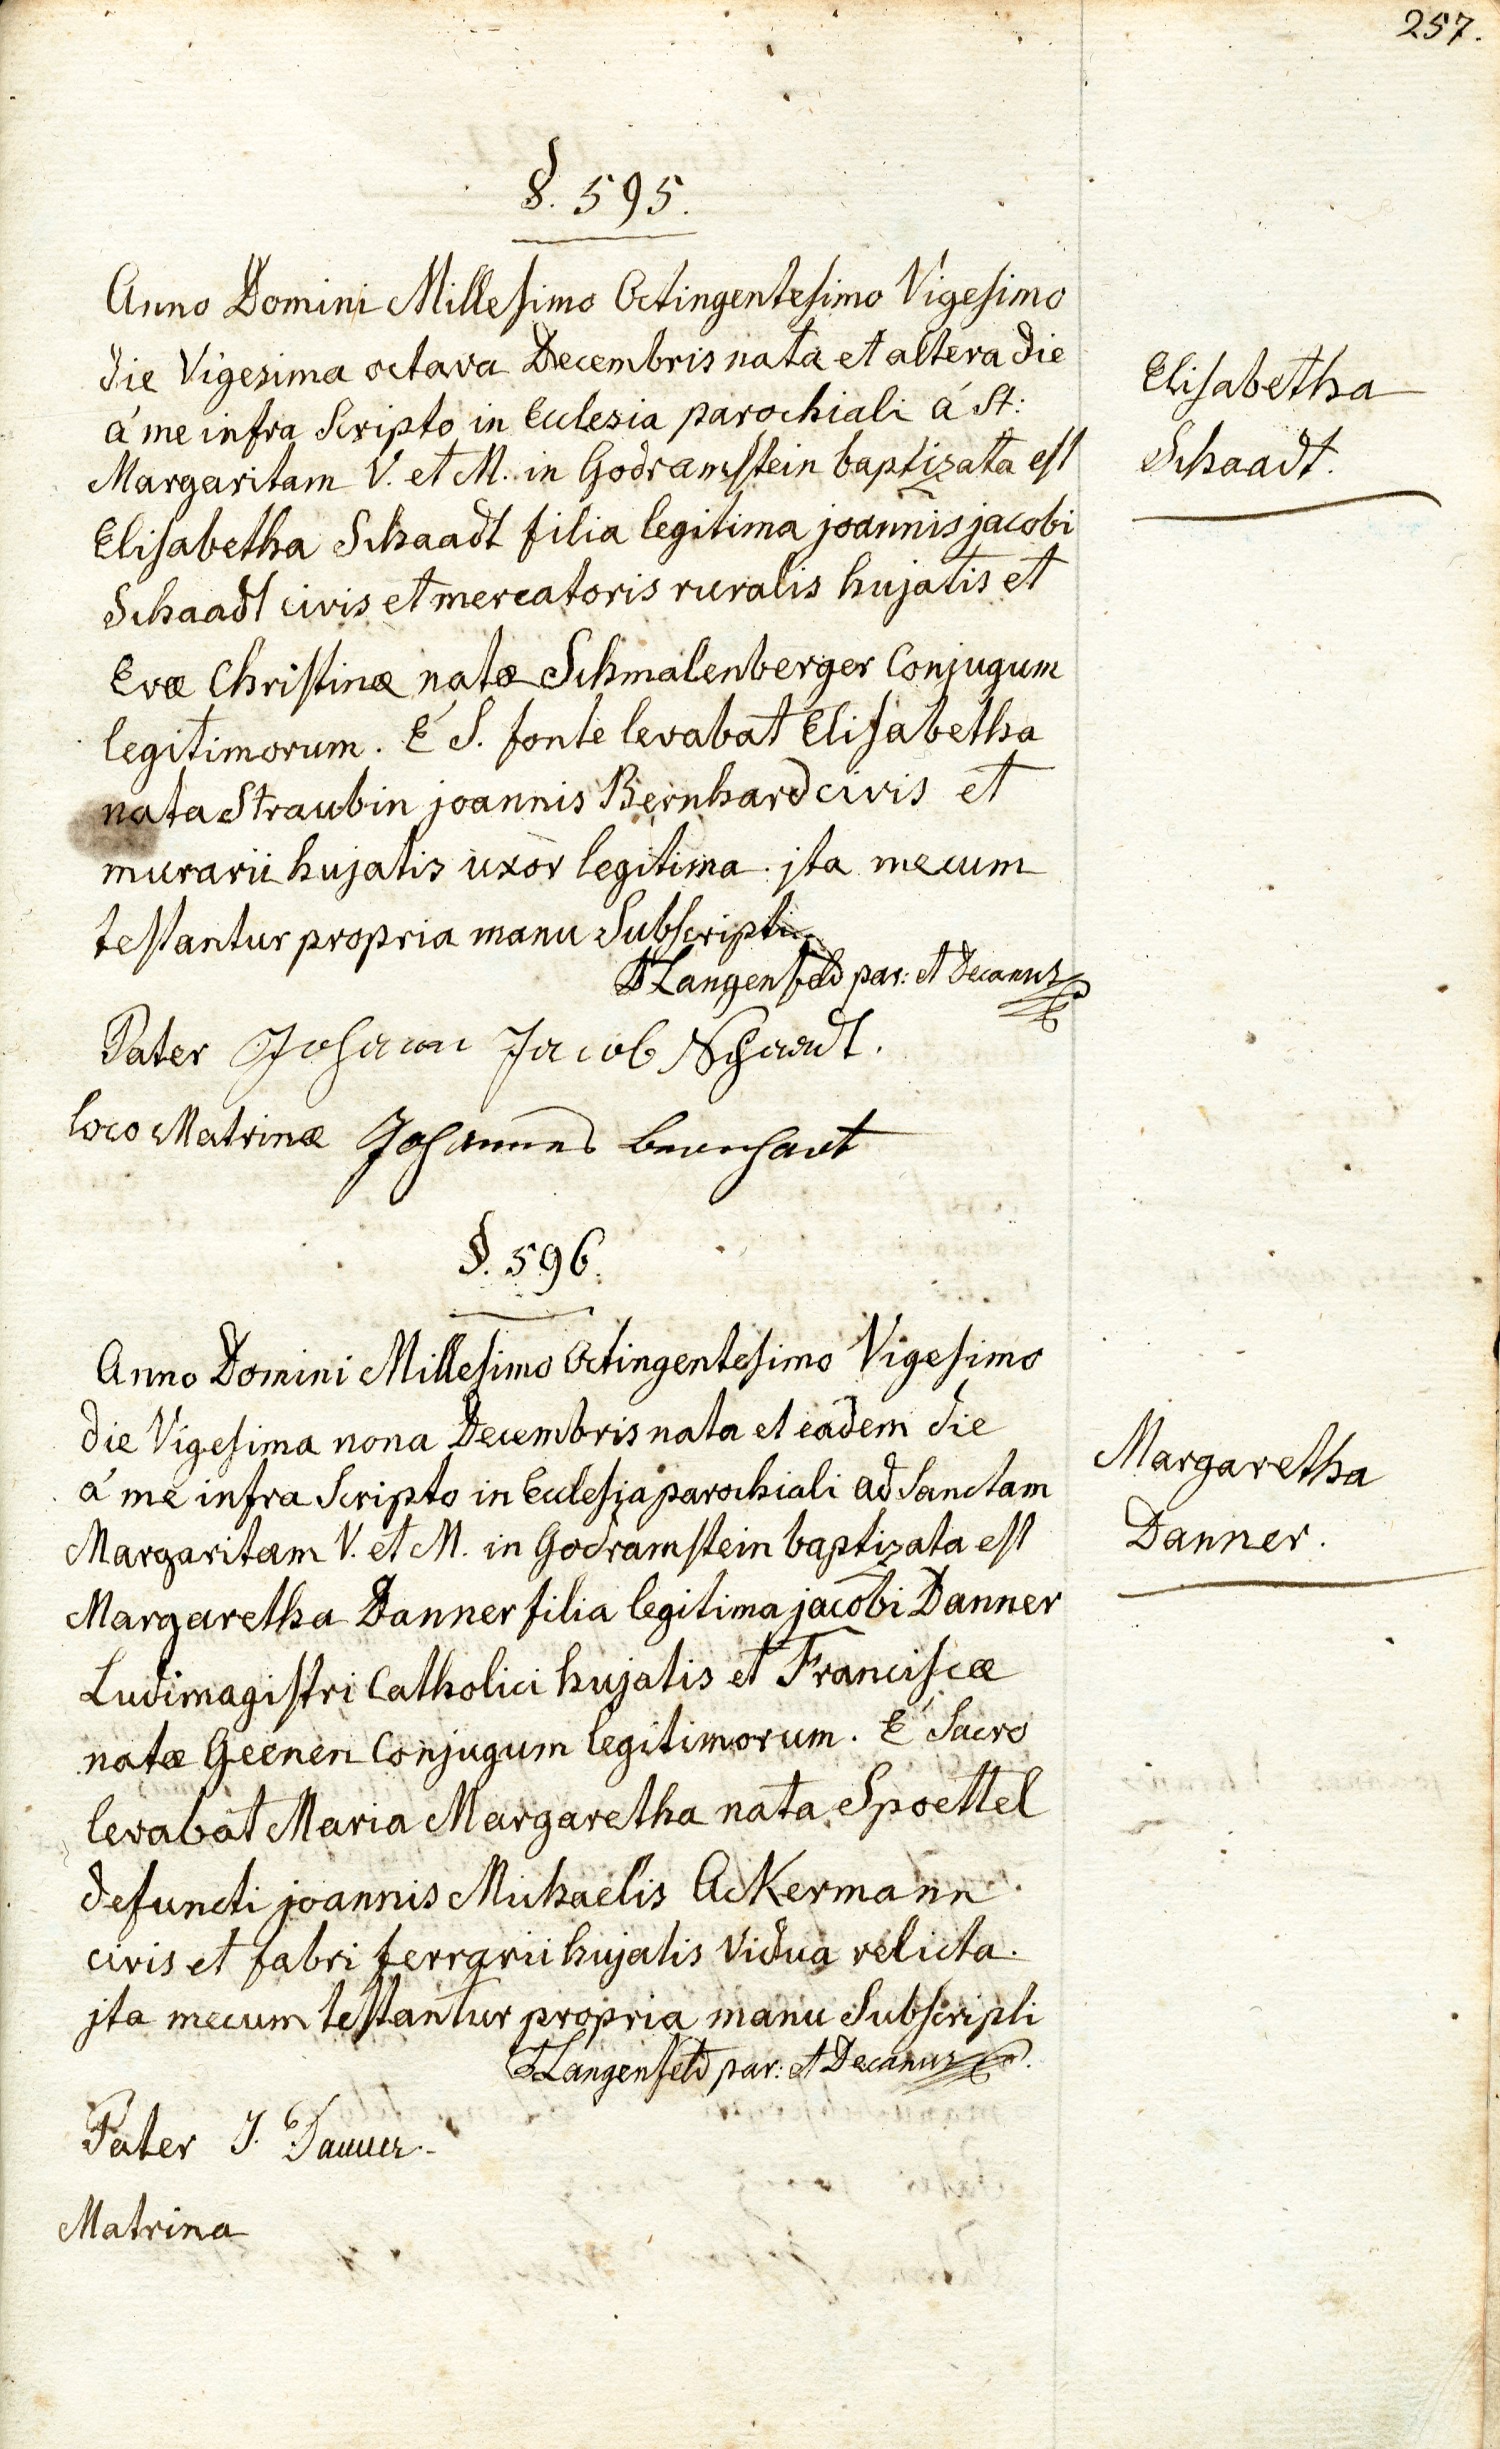 257.
§. 595.
Anno Domini Millesimo Octingentesimo Vigesimo
die Vigesima octava Decembris nata et altera die
á me infra Scripto in Ecclesia parochiali á St:
Margaritam V. et M. in Godramstein baptizata est
Elisabetha Schaadt filia legitima joannis jacobi
Schaadt civis et mercatoris ruralis hujatis et
Evæ Christinæ natæ Schmalenberger Conjugum
legitimorum. É S. fonte levabat Elisabetha
nata Straubin joannis Bernhard civis et
murarii hujatis uxor legitima. jta mecum
testantur propria manu Subscripti
Langenfeld par: et Decanus
Pater Johann Jacob Schaadt.
loco Matrinæ Johannes bernhart
Elisabetha
Schaadt.
§. 596.
Anno Domini Millesimo Octingentesimo Vigesimo
die Vigesima nona Decembris nata et eadem die
á me infra Scripto in Ecclesia parochiali ad Sanctam
Margaritam V. et M. in Godramstein baptizata est
Margaretha Danner filia legitima jacobi Danner
Ludimagistri Catholici hujatis et Franciscæ
natæ Geenen Conjugum legitimorum. É Sacro
levabat Maria Margaretha nata Spoettel
defuncti joannis Michaelis Ackermann
civis et fabri ferrarii hujatis vidua relicta.
jta mecum testantur propria manu Subscripti
Langenfeld par: et Decanus
Pater J. Danner.
Matrina
Margaretha
Danner.